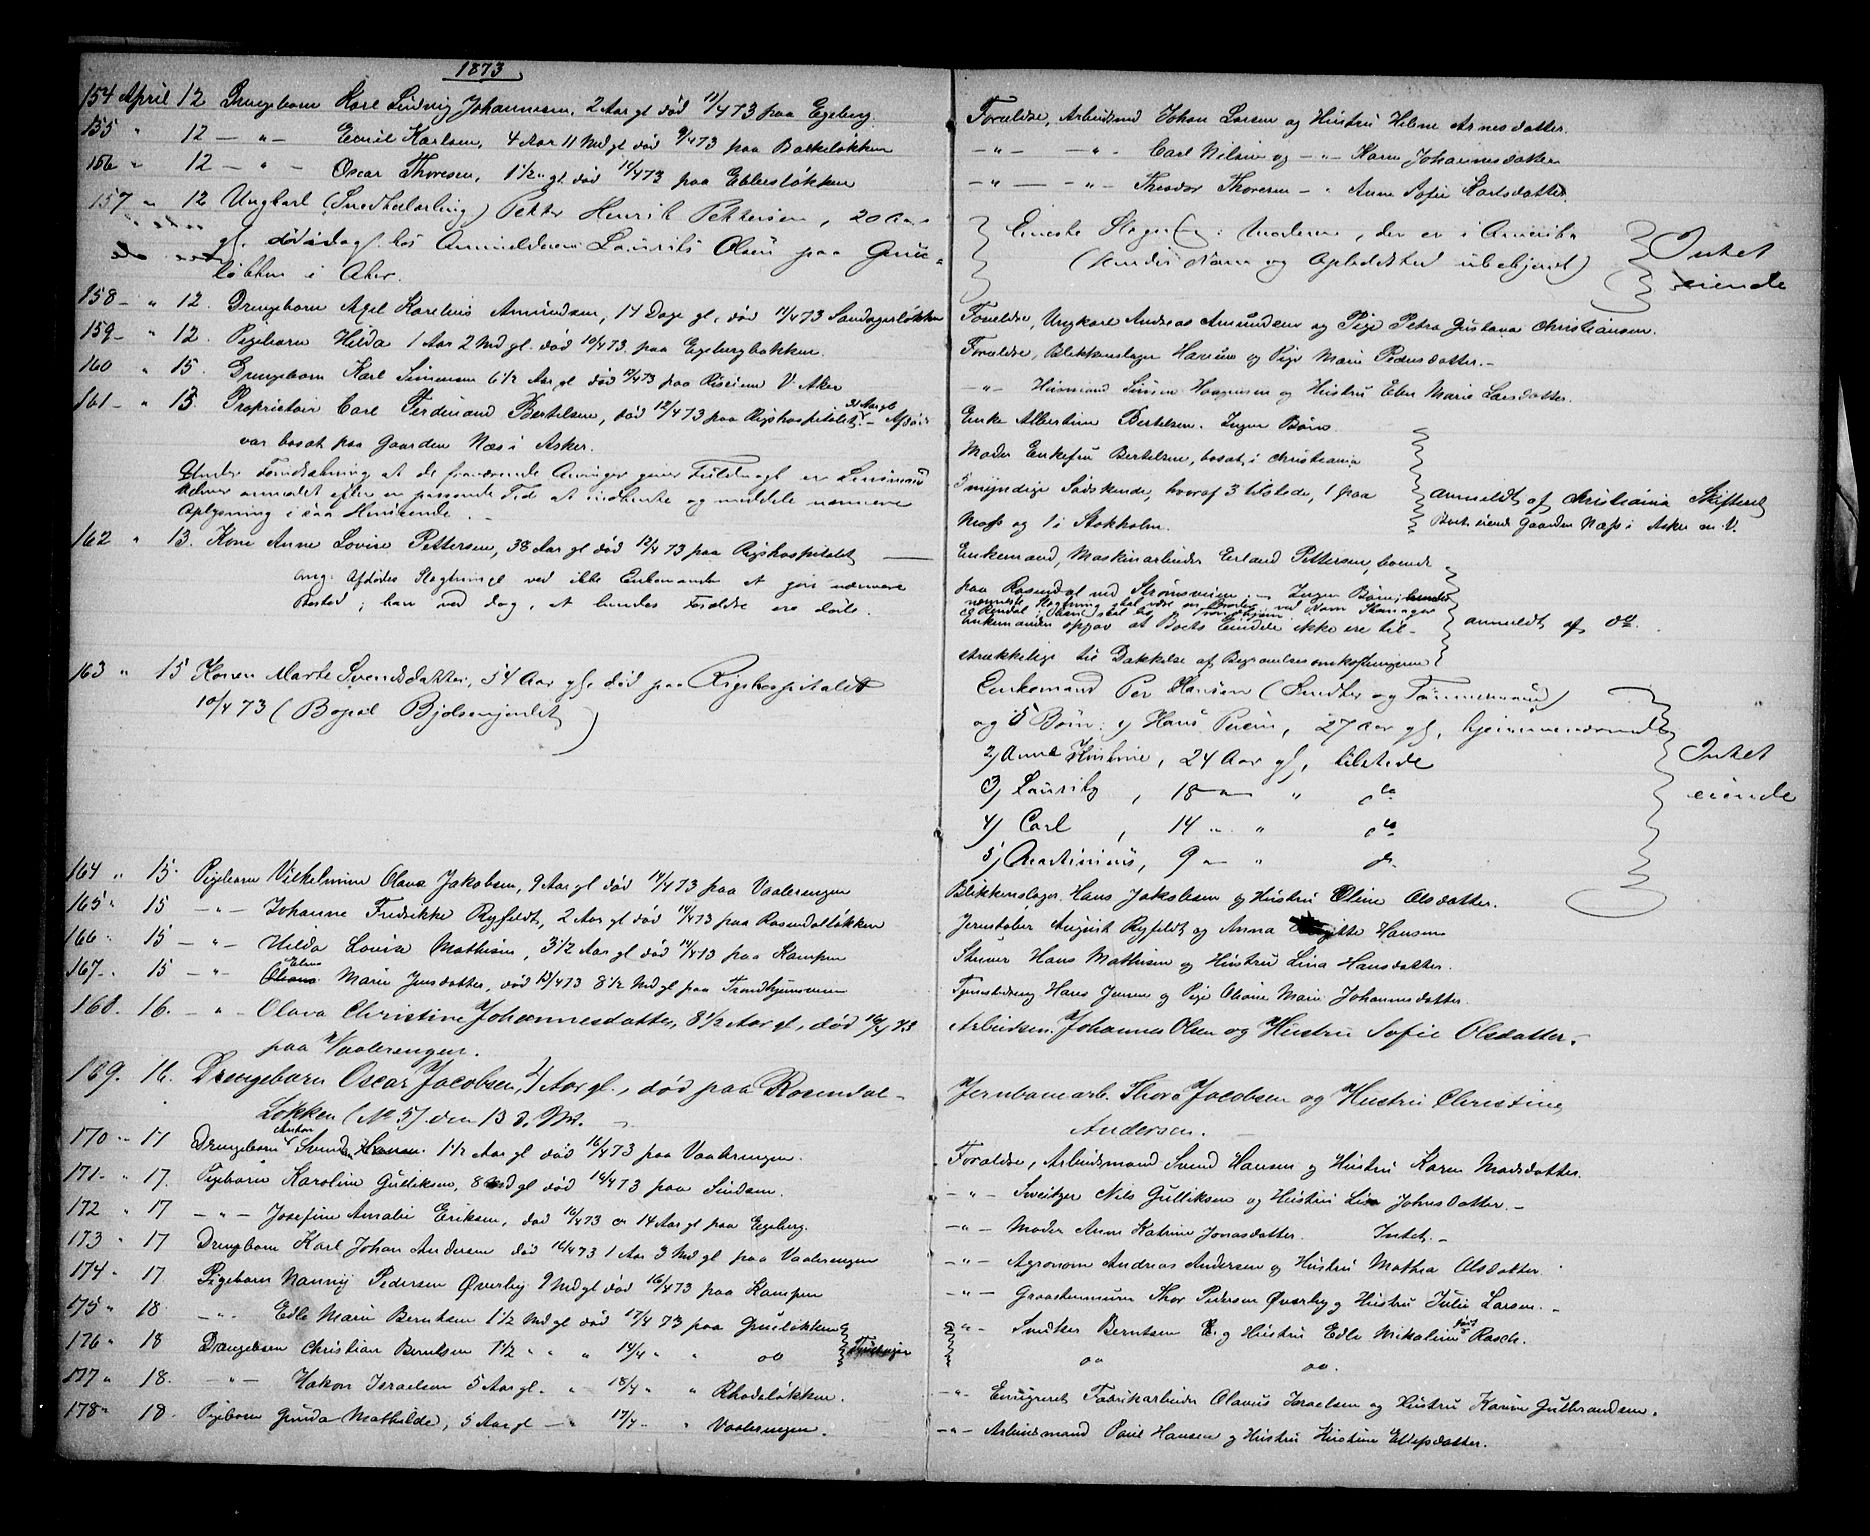 1873
154 April 12 Drengebarn Karl Ludvig Johannesen, 2 Aar gl død 11/4 73 paa Egeberg.
155 " 12 — " — Emil Karlsen, 4 Aar 11 Md gl død 9/4 73 paa Bakkeløkken
156 " 12 — " — Oscar Thoresen, 1 1/2 " gl. død 11/4 73 paa Ebbesløkken
157 " 12 Ungkarl (Snedkerlærling) Petter Henrik Pettersen, 20 Aar
gl. død idag hos Anmelderen Laurits Olsen paa Grue-
løkken i Aker.
158 — " 12. Drengebarn Axel Karelius Amundsen, 14 Dage gl, død 11/4 73 Sandagerløkken
159 — " 12. Pigebarn Hilda 1 Aar 2 Md gl. død 10/4 73 paa Egebergbakken.
160 " 15. Drengebarn Karl Simensen 6 1/2 Aar gl død 9/4 73 paa V. Aker
161 — " 15. Proprietær Carl Ferdinand Bertelsen, død 12/4 73 paa Rigshospitalet. 31 Aar gl — Afdøde
var bosat paa Gaarden Næs i Asker.
Under Forudsætning at de fraværende Arvinger giver Fuldmagt er Lensmand
anmodet efter en passende Tid at indhente og meddele nærmere
Oplysning i saa Henseende. —
162 " 13. Kone Anne Lovise Pettersen, 38 Aar gl død 12/4 73 paa Rigshospitalet —
Ang. Afdødes Slægtninge ved ikke Enkemanden at give nærmere
Besked; han ved dog, at hendes Forældre ere døde.
163 " 15 Konen Marte Svendsdatter, 54 Aar gl, død paa Rigshospitalet
10/4 73 (Bopæl Bjølsenjordet)
164 " 15. Pigebarn Vilhelmine Olava Jakobsen, 9 Aar gl død 14/4 73 paa Vaalerengen
165 " 15 — " — Johanne Fredrikke Ryfeldt, 2 Aar gl død 14/4 73 paa Rosendalløkken
166 " 15 — " — Hilda Lovise Mathisen, 3 1/2 Aar gl død 14/4 73 paa Kampen
167 — " 15 — " — Eline Marie Jensdatter, død 13/4 73 8 1/2 Md gl paa Trondhjemsveien
168. 16. — " — Olava Christine Johannesdatter, 8 1/2 Aar gl, død 16/4 73
paa Vaalerengen.
169. 16. Drengebarn Oscar Jacobsen, 4 Aar gl., død paa Rosendal-
Løkken (No 5) den 13 d. M.
170 — " 17 Drengebarn Anton Svendsen 1 1/2 Aar gl død 16/4 73 paa Vaalerengen.
171 — " 17. Pigebarn Karoline Gulliksen, 8 Md gl død 14/4 73 paa Sinsen.
172 " 17 — " — Josefine Amalie Eriksen, død 16/4 73 14 Aar gl paa Egeberg.
173 " 17 Drengebarn Karl Johan Andersen død 16/4 73 1 Aar 3 Md gl paa Vaalerengen
174 " 17 Pigebarn Nanny Pedersen Øverby 9 Md gl død 16/4 73 paa Kampen
175 " 18 — " — Edle Marie Berntsen 1 1/2 Md gl død 17/4 73 paa Grueløkken
176 " 18 Drengebarn Christian Berntsen 1 1/2 " " " 14/4 " " do Tvillinger
177 " 18. — " — Hakon Israelsen 5 Aar gl. " 18/4 " " Rhodeløkken.
178 " 18. Pigebarn Gunda Mathilde, 5 Aar gl — " 17/4 " " Vaalerengen.
Forældre, Arbeidsmd Johan Larsen og Hustru Helene Arnesdatter.
— " — — " — Carl Nilsen og — " — Karen Johannesdatter
— " — — " — Theodor Thoresen — " Anne Sofie Karlsdatter.
Eneste Slægtn: Moderen, der er i Amerika
(hendes Navn og Opholdssted ubekjendt)
Intet
eiende
Forældre, Ungkarl Andreas Amundsen og Pige Petra Gustava Christiansen.
Forældre, Blikkenslager Hansen og Pige Marie Pedersdatter. —
— " — Husmand Simen Haagensen og Hustru Ellen Marie Larsdatter.
Enke Albertine Bertelsen. Ingen Børn
Moder Enkefru Bertelsen, bosat i Christiania
5 myndige Sødskende, hvoraf 3 tilstede, 1 paa
Moss og 1 i Stokholm.
anmeldt af Christiania Skifteret
Boet eiende Gaarden Næs i Asker m. V.
Enkemand, Maskinarbeider Erland Pettersen, boende
paa Rosendal ved Strømsveien. — Ingen Børn; hendes
nærmeste Slægtning skal være en Broder ved Navn
Enkemanden opgav at Boets Eiendele ikke ere til-
strækkelige til Dækkelse af Begravelsesomkostningerne
anmeldt af do.
Enkemand Per Hansen (Snedker og Tømmermand)
og 5 Børn: 1) Hans Persen, 27 Aar gl, hjemmeværende
2) Anne Kristine, 24 Aar gl, tilstede
3) Lauritz, 18 — " do
4) Carl, 14 " " do
5) Martinius, 9 — " do.
Intet
eiende
Blikkenslager Hans Jakobsen og Hustru Oline Olsdatter.
Jernstøber August Ryfeldt og Anna Hansen
Stuer Hans Mathisen og Hustru Lina Hansdatter.
Tjenestedreng Hans Jensen og Pige Oliane Marie Johannesdatter.
Arbeidsm. Johannes Olsen og Hustru Sofie Olsdatter.
Jernbanearb. Thore Jacobsen og Hustru Christine
Andersen. —
Forældre, Arbeidsmand Svend Hansen og Hustru Karen Madsdatter.
— " — Sveitzer Nils Gulliksen og Hustru Lina Johnsdatter. —
— " — Moder Anne Katrine Jonasdatter. Intet. —
— " — Agronom Andreas Andersen og Hustru Mathea Olsdatter.
— " — Graastensmurer Thor Pedersen Øverby og Hustru Julie Larsen. —
— " — Snedker Berntsen E. og Hustru Edle Mikaline født Rasch.
do do.
— " — Emigreret Fabrikarbeider Olavus Israelsen og Hustru Karine Gulbrandsen.
— " — Arbeidsmand Paul Hansen og Hustru Kirstine Ellefsdatter.